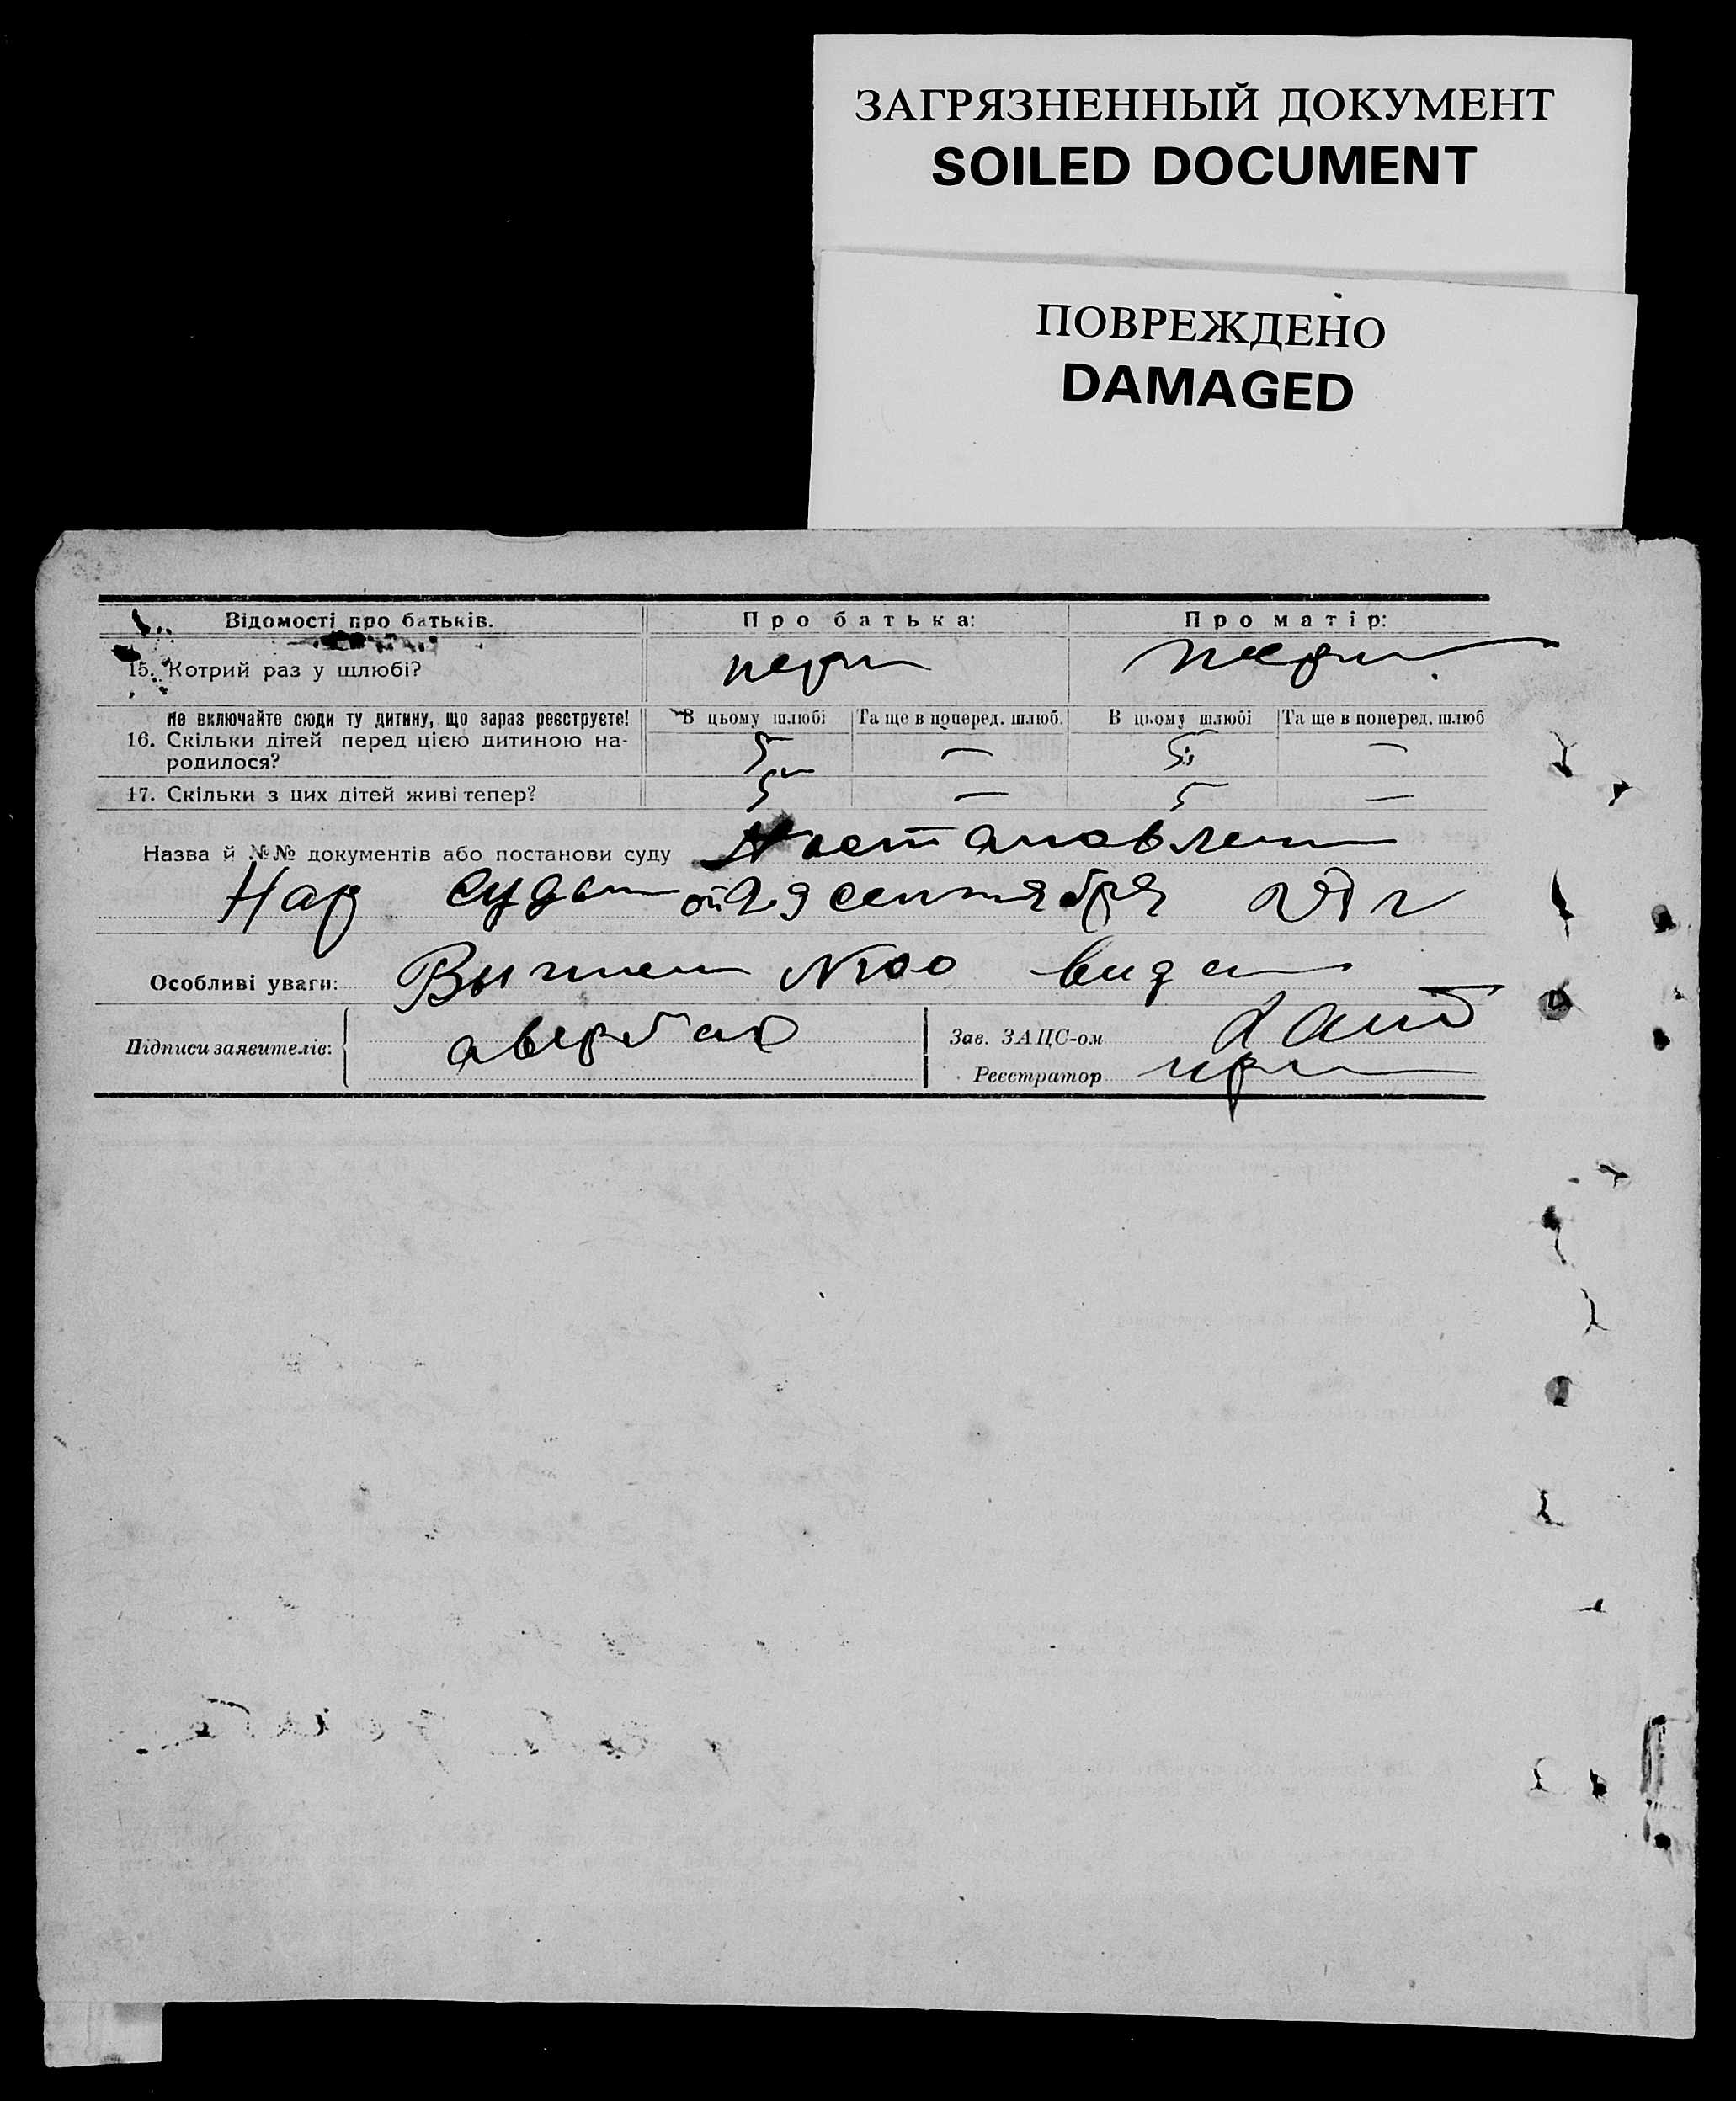 ЗАГРЯЗНЕННЫЙ ДОКУМЕНТ
SOILED DOCUMENT
ПОВРЕЖДЕНО
DAMAGED
Відомості про батьків. Про батька: Про матір:
15. Котрий раз у шлюбі? перв перв
Не включайте сюди ту дитину, що зараз реєструєте! В цьому шлюбі Та ще в поперед. шлюб. В цьому шлюбі Та ще в поперед. шлюб
16. Скільки дітей перед цією дитиною на- 5 — 5 —
родилося?
17. Скільки з цих дітей живі тепер? 5 — 5 —
Назва й №№ документів або постанови суду Постановлен
Нар суда от 29 сентября
Особливі уваги: Выпись N 100 выдан
Підписи заявителів: Авербах Зав. ЗАЦС-ом
Реєстратор